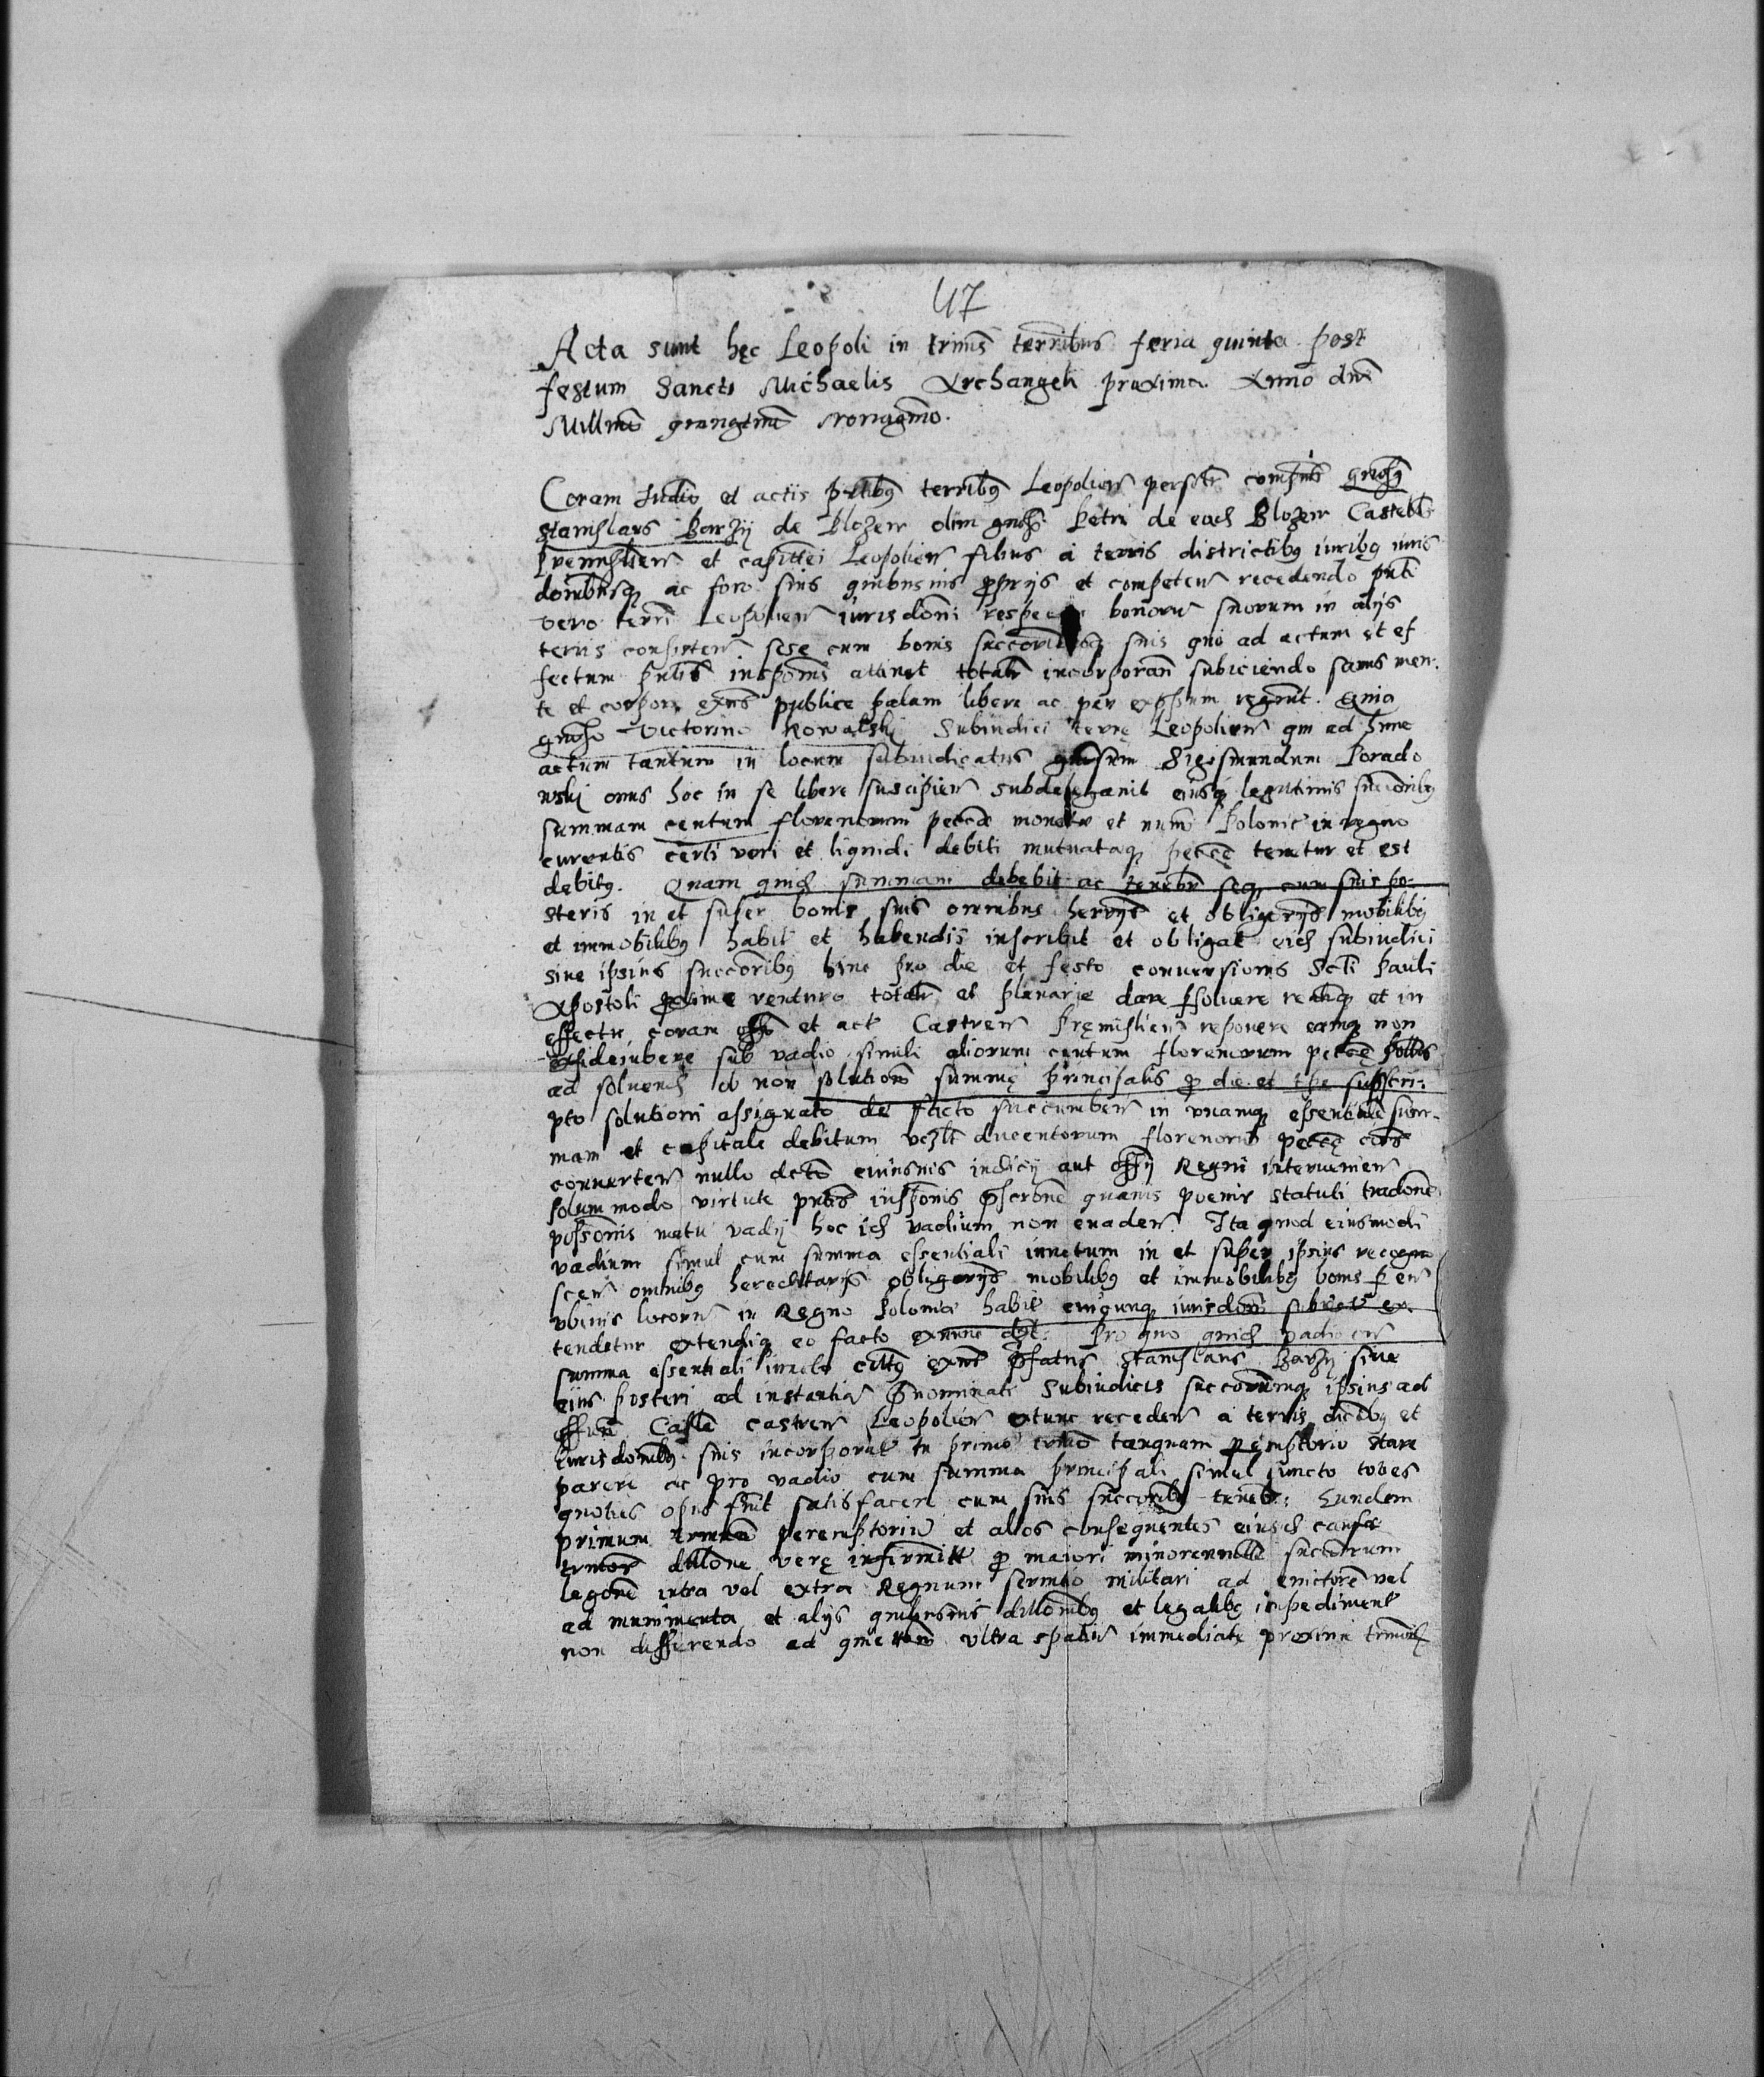 47
Acta sunt hęc Leopoli in trinis terribus feria quinta post
festum Sancti Michaelis Archangeli proxima Anno dni
Millmo quingtmo nonagmo.
Coram Iudio et actis pntibus terribus Leopolien persolr compns gnosus
Stanislaus Barzy de Blozew olim gnosi Petri de eadem Blozew Castell
Premislien et capittei Leopolien filius à terris districtibus iuribus iuris
dombusque ac foro suis quibusuis proprijs et competen recedendo pnti
vero terri Leopolien iurisdoni respectu bonorum suorum in alijs
terris consisten sese cum bonis succoribusque suis quo ad actum et ef
fectum pntis inspomis attinet totalr incorporan subiciendo sanus men-
te et corpore exns publice palam libere ac per expssum regnit. Quia
gnoso Victorino Kowalski Subiudici terre Leopolien qui ad hunc
actum tantum in locum subiudicatus gnosum Sigismundum Porado
wski onus hoc in se libere suscipien subdelegauit eiusque legitimis succoribus
summam centum florenorum pecce monete et numi Polonic in regno
currentis certi veri et liquidi debiti mutuataque pecce tenetur et est
debitus. Quam quid summam debebit ac tenebr seque cum suis po-
steris in et super bonis suis omnibus herrijs et obligarijs mobilibus
et immobilibus habit et habendis inscribit et obligat eid subiudici
siue ipsius succoribus hinc pro die et festo conuersionis Scti Pauli
Apostoli proxime venturo totalr et plenarie dare psoluere realrque et in
effectu coram offo et act Castren Premislien reponere eamque non
fideiubere sub vadio simili aliorum centum florenorum pecce pollis
ad soluend ob non solutionem summę principalis pro die et tpe suprascri-
pto solutioni assignato de facto succumben in vnamque essentiale sum-
mam et capitale debitum vczlt ducentorum florenorum pecce eius
conuerten nullo dcto cuiusuis iudicij aut offij Regni interuenien
solummodo virtute pntis inspomis pscrone quauis poenis statuti tradone
possomis metu vadij hoc id vadium non euaden. Ita quod eiusmodi
vadium simul cum summa essentiali iunctum in et super ipsius recogno
scen omnibus hereditarijs obligarijs mobilibus et immobilibus bonis per eum
vbiuis locorum in Regno Polonia habit cuiqunque iurisdoni subiect ex
tendetur extendique eo facto exnunc dzt. Pro quo quid vadio cum
summa essentiali iuncto cittus exnt pfatus Stanislaus Barzy siue
eius posteri ad instantiam pnominati Subiudicis succorumque ipsius ad
offium Caple castren Leopolien extunc receden a terris dictibus et
Iurisdonibus suis incorporat in primo trmo tanquam peremptorio stare
parere ac pro vadio cum summa principali simul iuncto toties
quoties opus fuit satisfacere cum suis succoribus tenebr: Eundem
primum trmnu peremptoriu et alios consequentes eiusd causa
trmos dillone verę infirmitt pro maiori minorennitt succorum
legone intra vel extra Regnum seruitio militari ad euictore vel
ad munimenta et alijs quibusuis dillonibus et legalibus impediment
non differendo ad quietam vltra spatiu immediate proxime trmoru